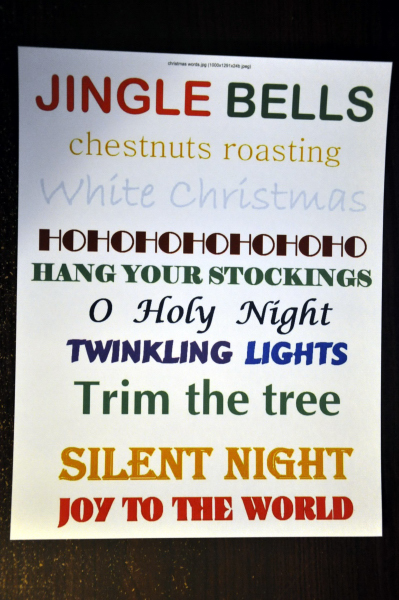 christmas words.jpg (1000x1291x24b jpeg)
JINGLE BELLS
chestnuts roasting
White Christmas
HOHOHOHOHOHOHO
HANG YOUR STOCKINGS
O Holy Night
TWINKLING LIGHTS
Trim the tree
SILENT NIGHT
JOY TO THE WORLD